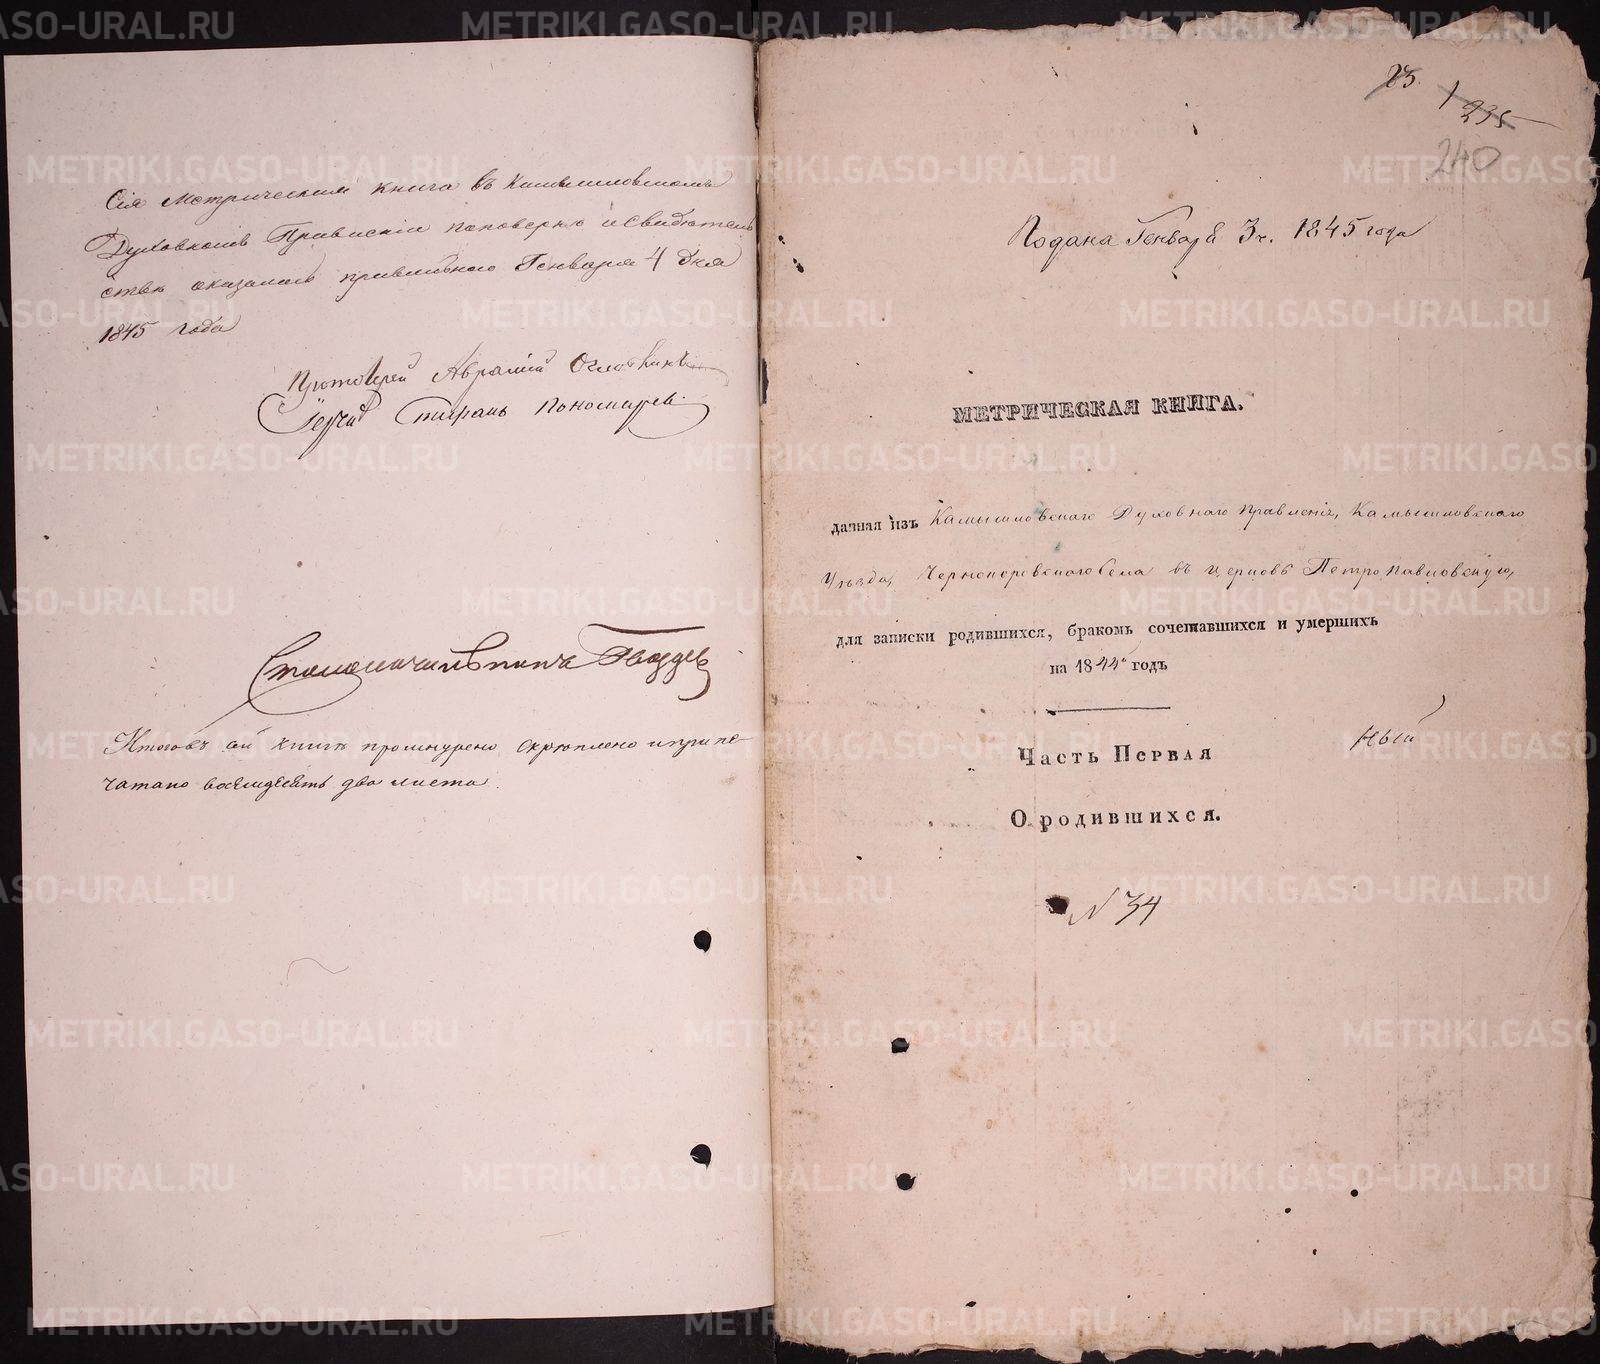 Сія Метрическая книга въ Камышловскомъ
Духовномъ Правленіи по поверкѣ и свидѣтель
ству оказалась правильною Генваря 4 дня
1845 года
Протоіерей Аврамій Оглоблинъ
Іерей Стефанъ Пономаревъ
Столоначальникъ
Итого въ сей книгѣ прошнуровано скрѣплено и припе-
чатано восемьдесятъ два листа.
23.
1
235
240
Подана Генваря 3 ч. 1845 года
МЕТРИЧЕСКАЯ КНИГА.
данная изъ Камышловскаго Духовнаго Правленія, Камышловскаго
Уѣзда, села въ церковь Петропавловскую,
для записки родившихся, бракомъ сочетавшихся и умершихъ
на 1844й годъ
Часть Первая
ный
О родившихся.
N 34
METRIKI.GASO-URAL.RU